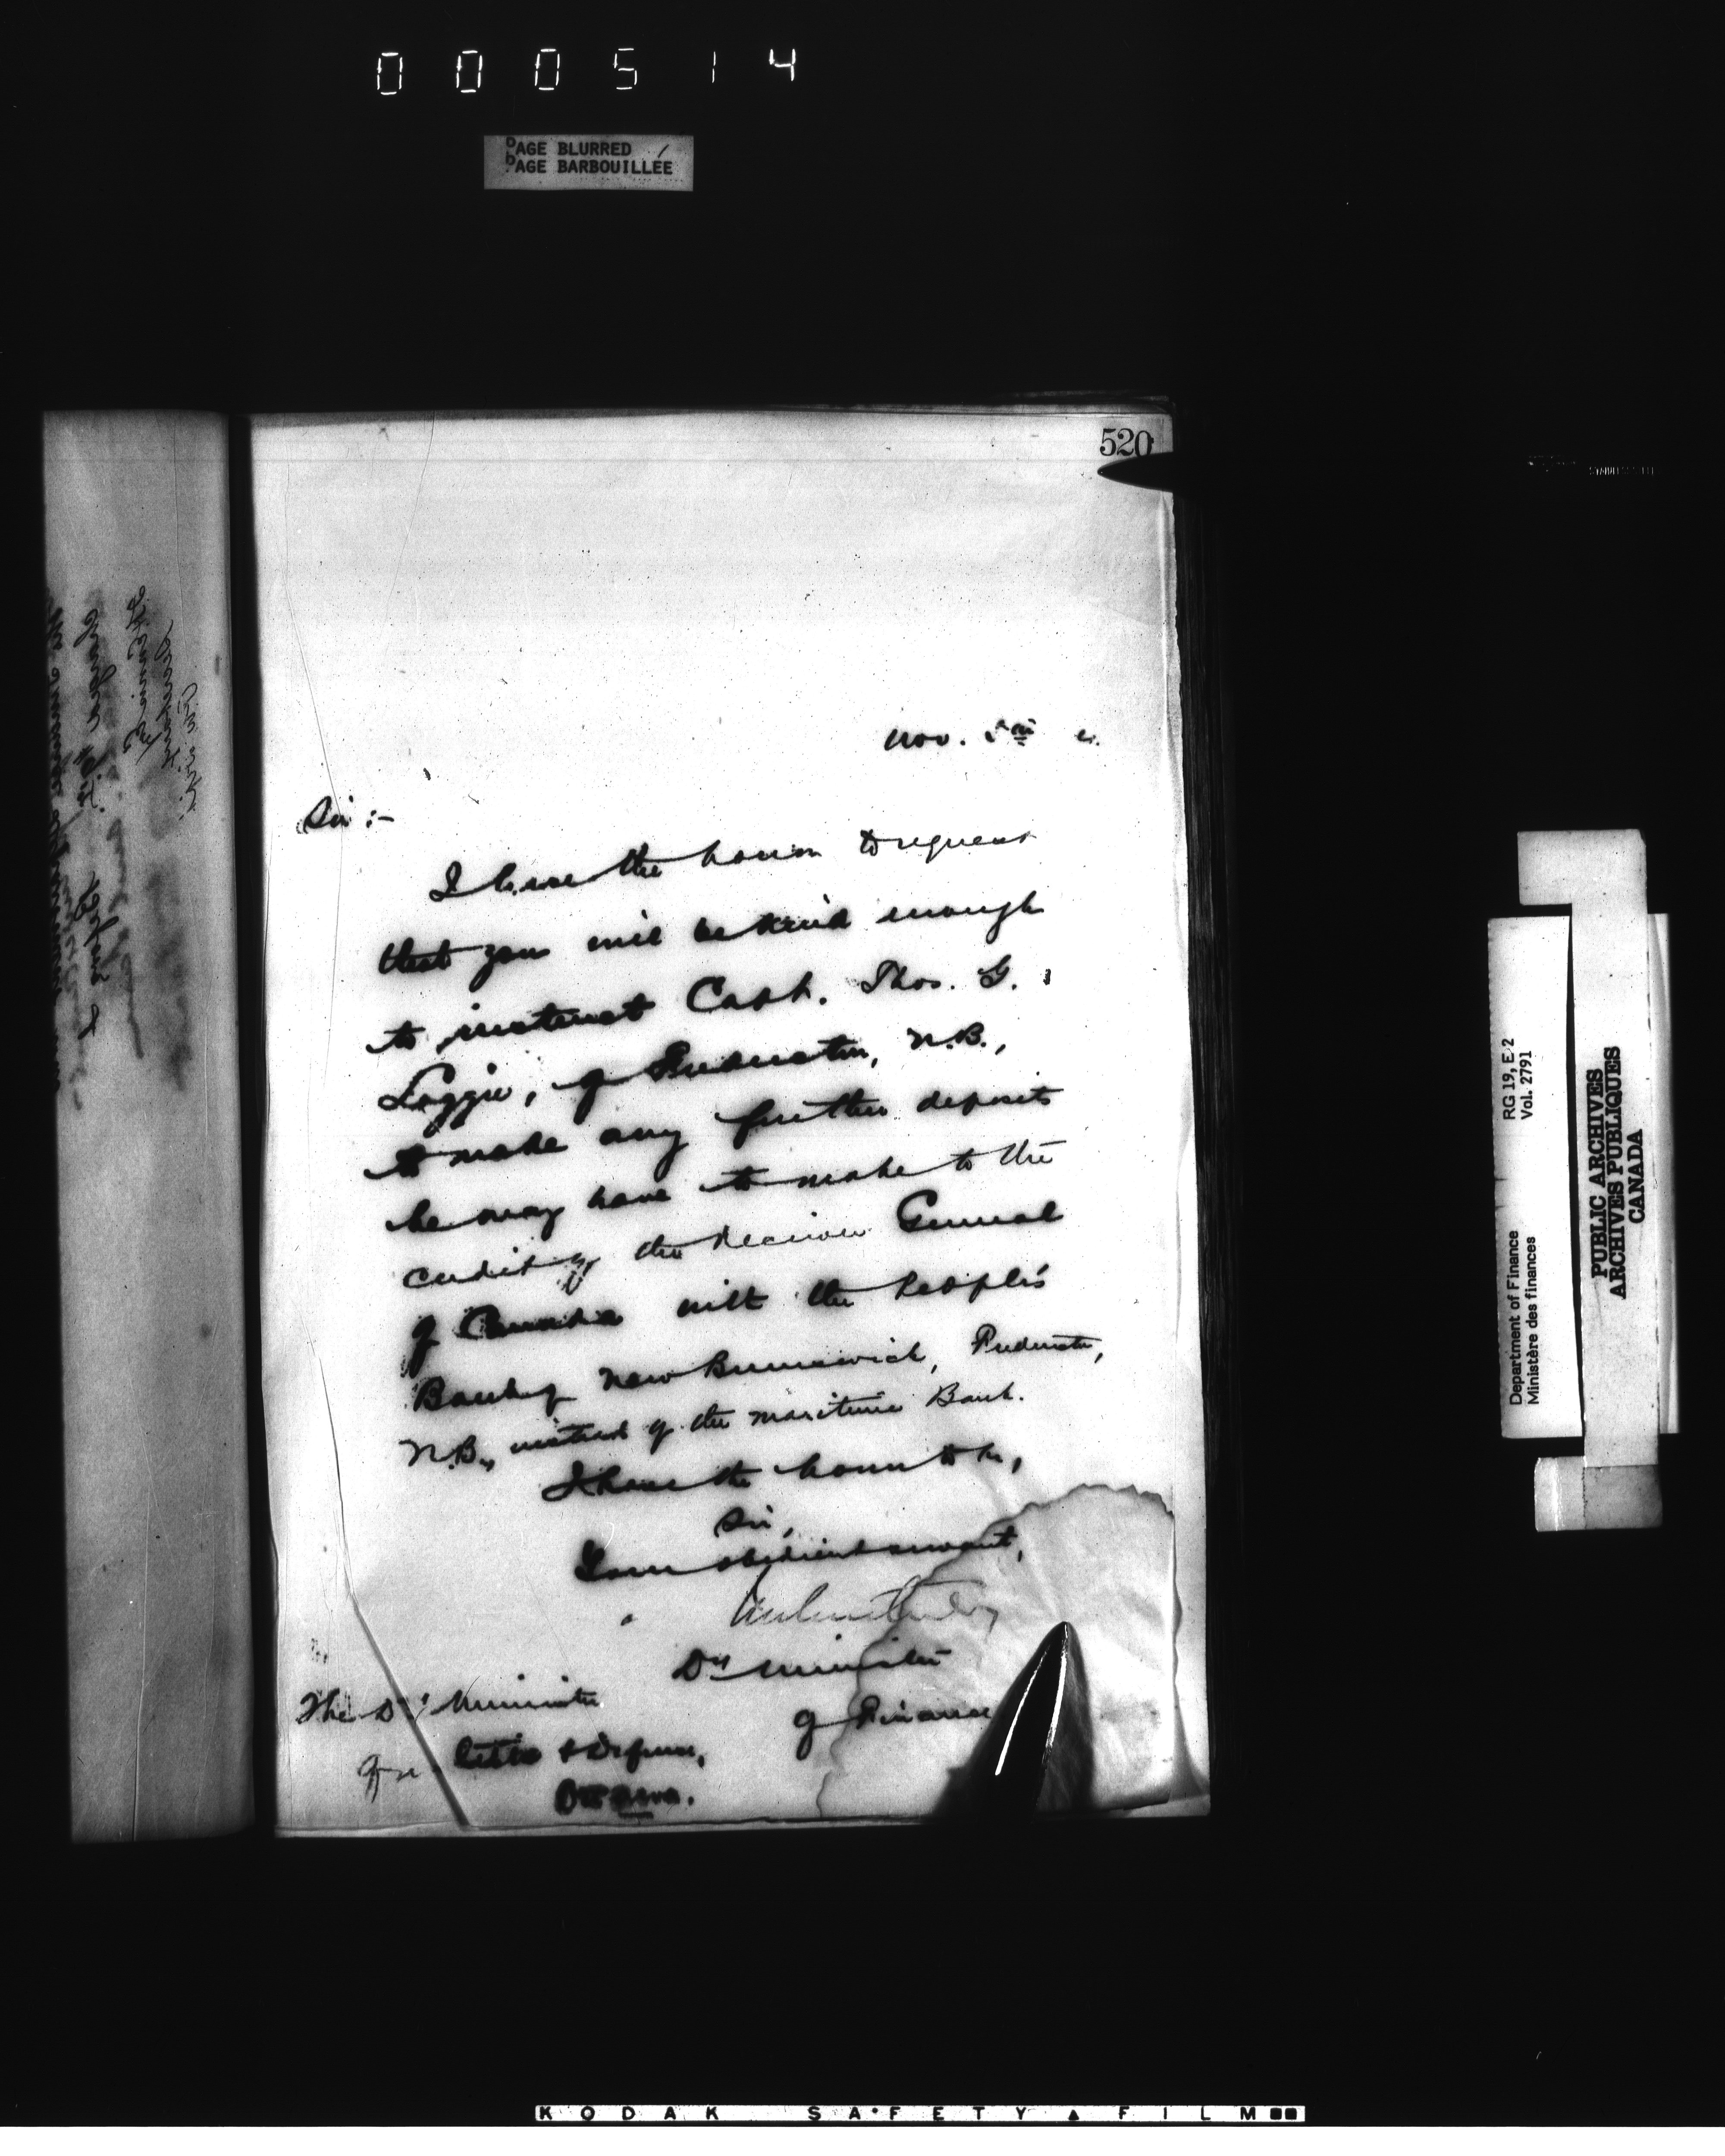 000514
PAGE BLURRED
PAGE BARBOUILLÉE
520
Nov. 5th
Sir :-
I have the honor to request
that you will be kind enough
to instruct Capt. Thos. G.
Loggie, of Fredericton, N.B.,
to make any further deposits
he may have to make to the
credit of the Receiver General
of Canada with the People's
Bank of New Brunswick, Fredericton,
N.B., instead of the Maritime Bank.
I have the honor to be,
Sir,
Your obedient servant,
Dy Minister
of Finance
The Dy Minister
of Militia & Defence,
Ottawa.
RG 19, E 2
Vol. 2791
Department of Finance
Ministère des finances
PUBLIC ARCHIVES
ARCHIVES PUBLIQUES
CANADA
KODAK SAFETY FILM